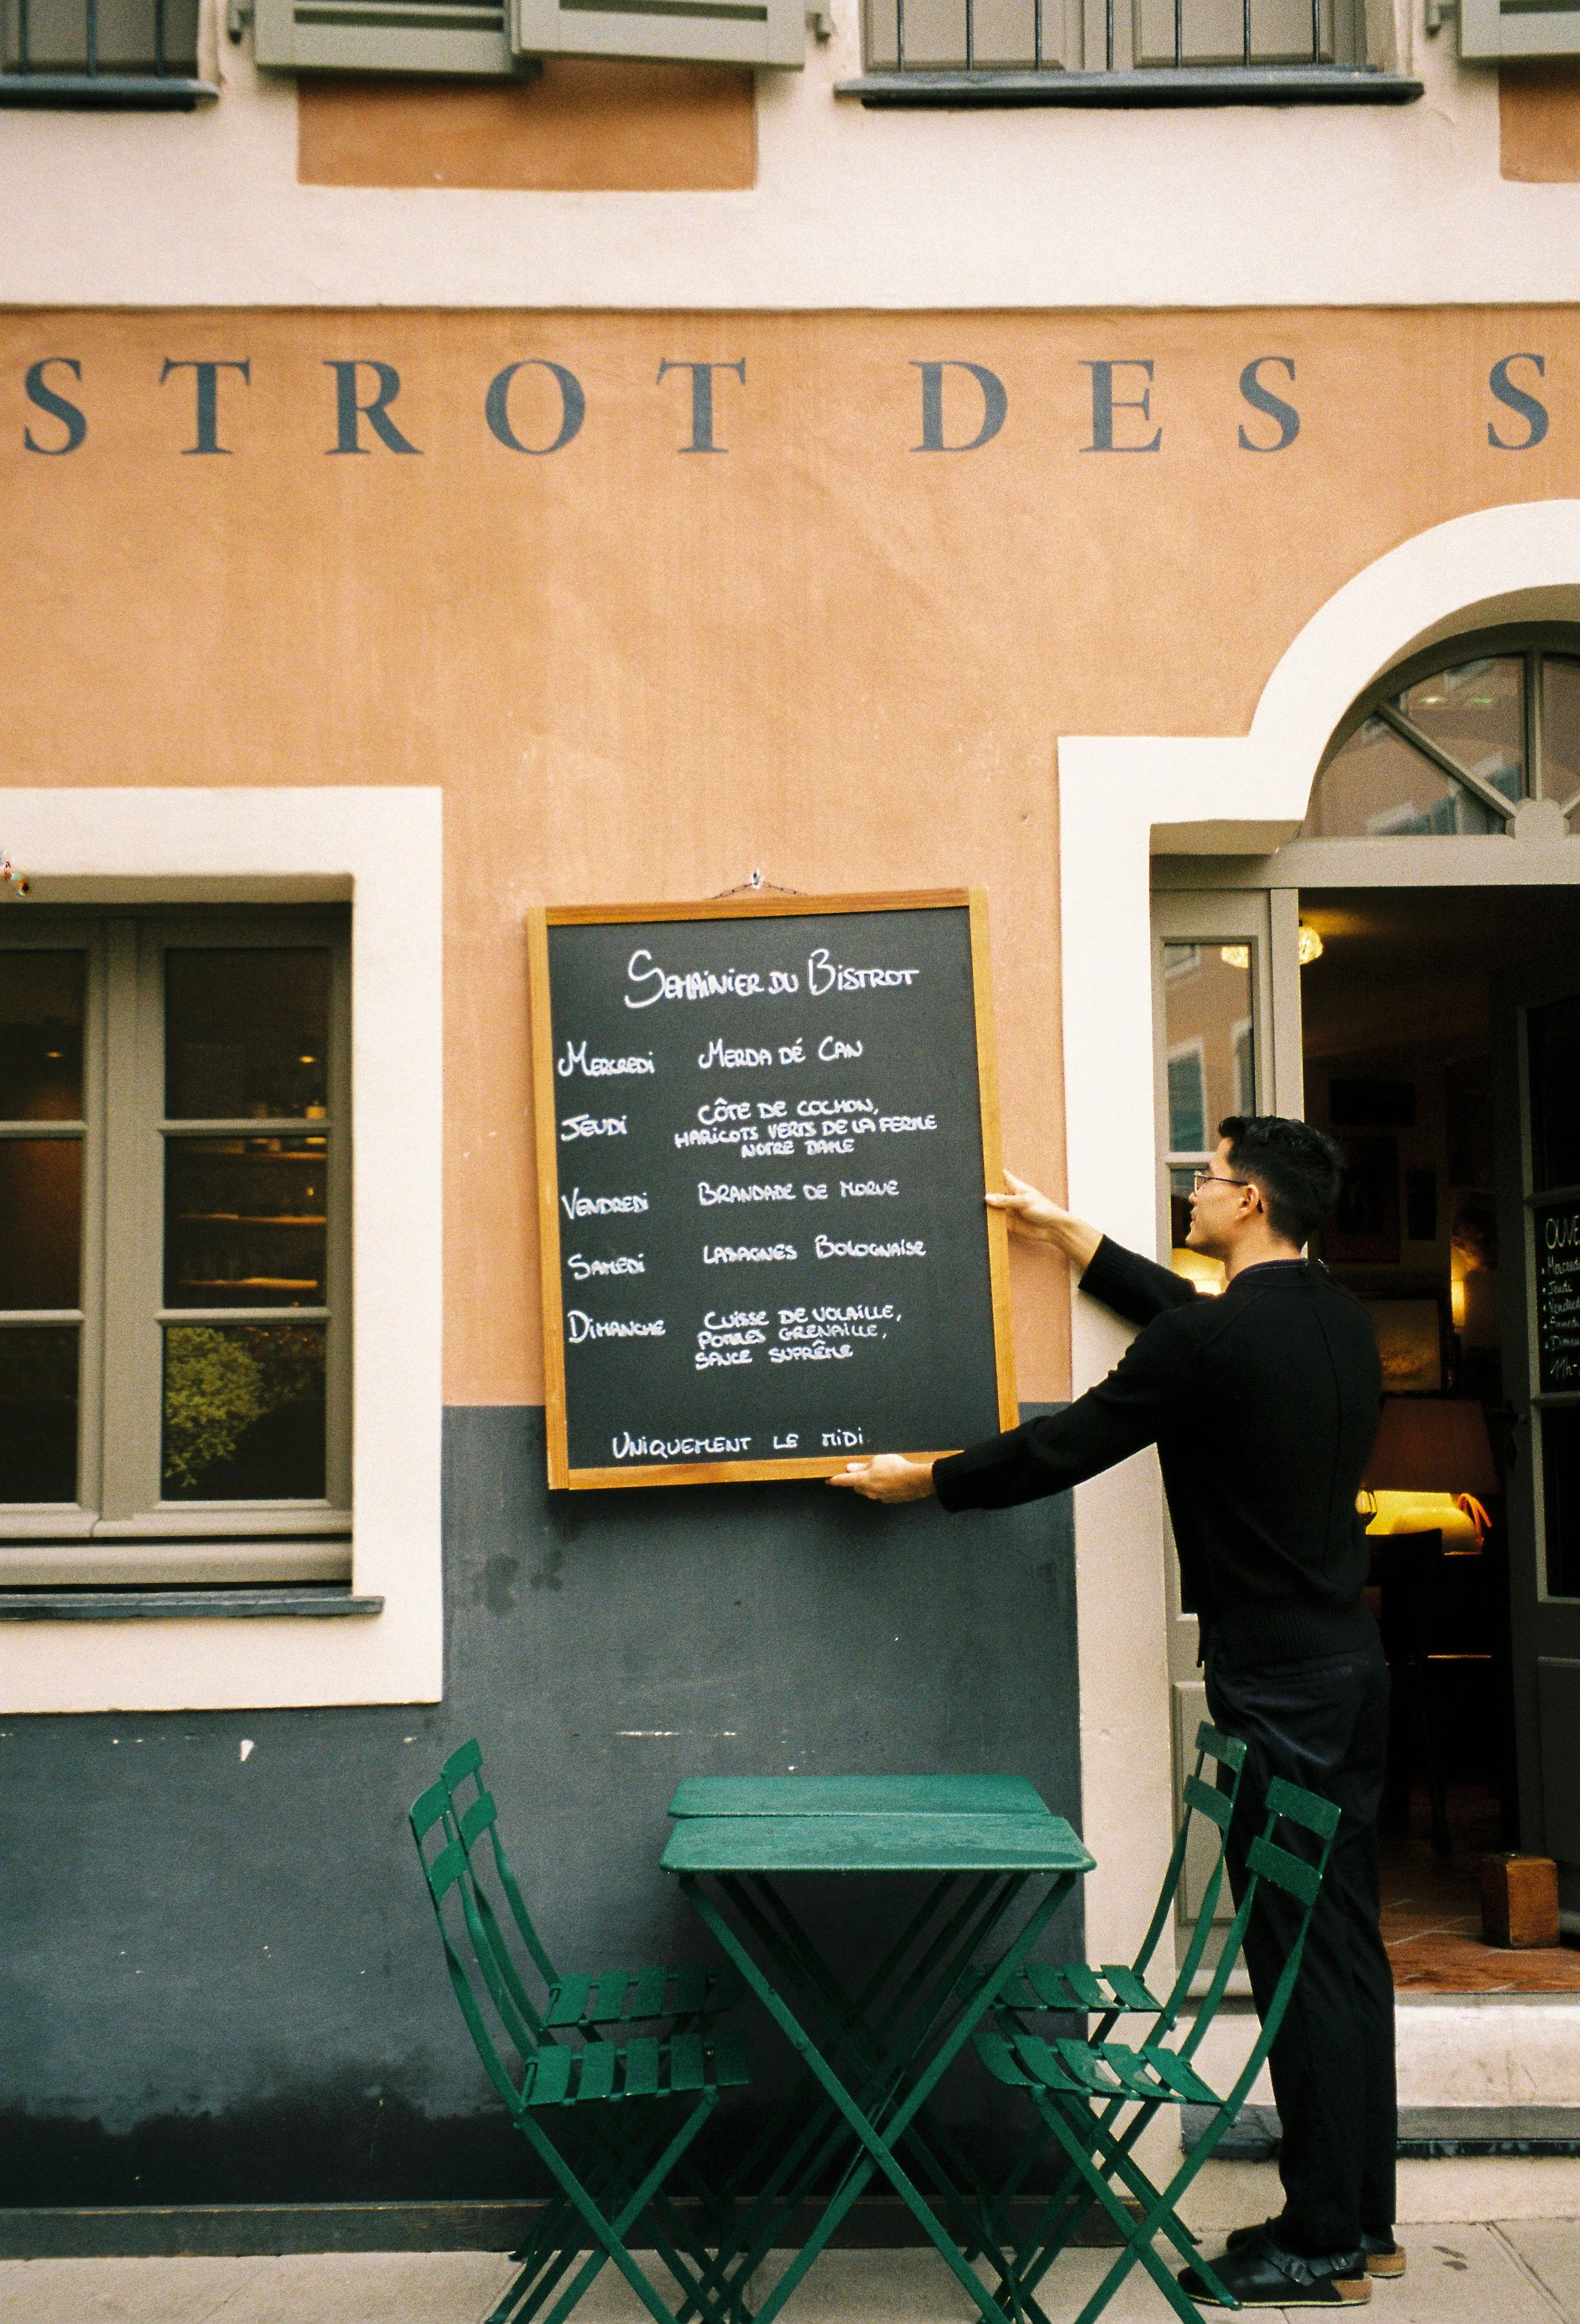 STROT DES S
SEMAINIER DU BISTROT
MERCREDI MERDA DÉ CAN
JEUDI CÔTE DE COCHON,
HARICOTS VERTS DE LA FERME
NOTRE DAME
VENDREDI BRANDADE DE MORUE
SAMEDI LASAGNES BOLOGNAISE
DIMANCHE CUISSE DE VOLAILLE,
POMMES GRENAILLE,
SAUCE SUPRÊME
UNIQUEMENT LE MIDI
OUVE
• Mercredi
• Jeudi
• Vendred
• Samed
• Diman
11h-